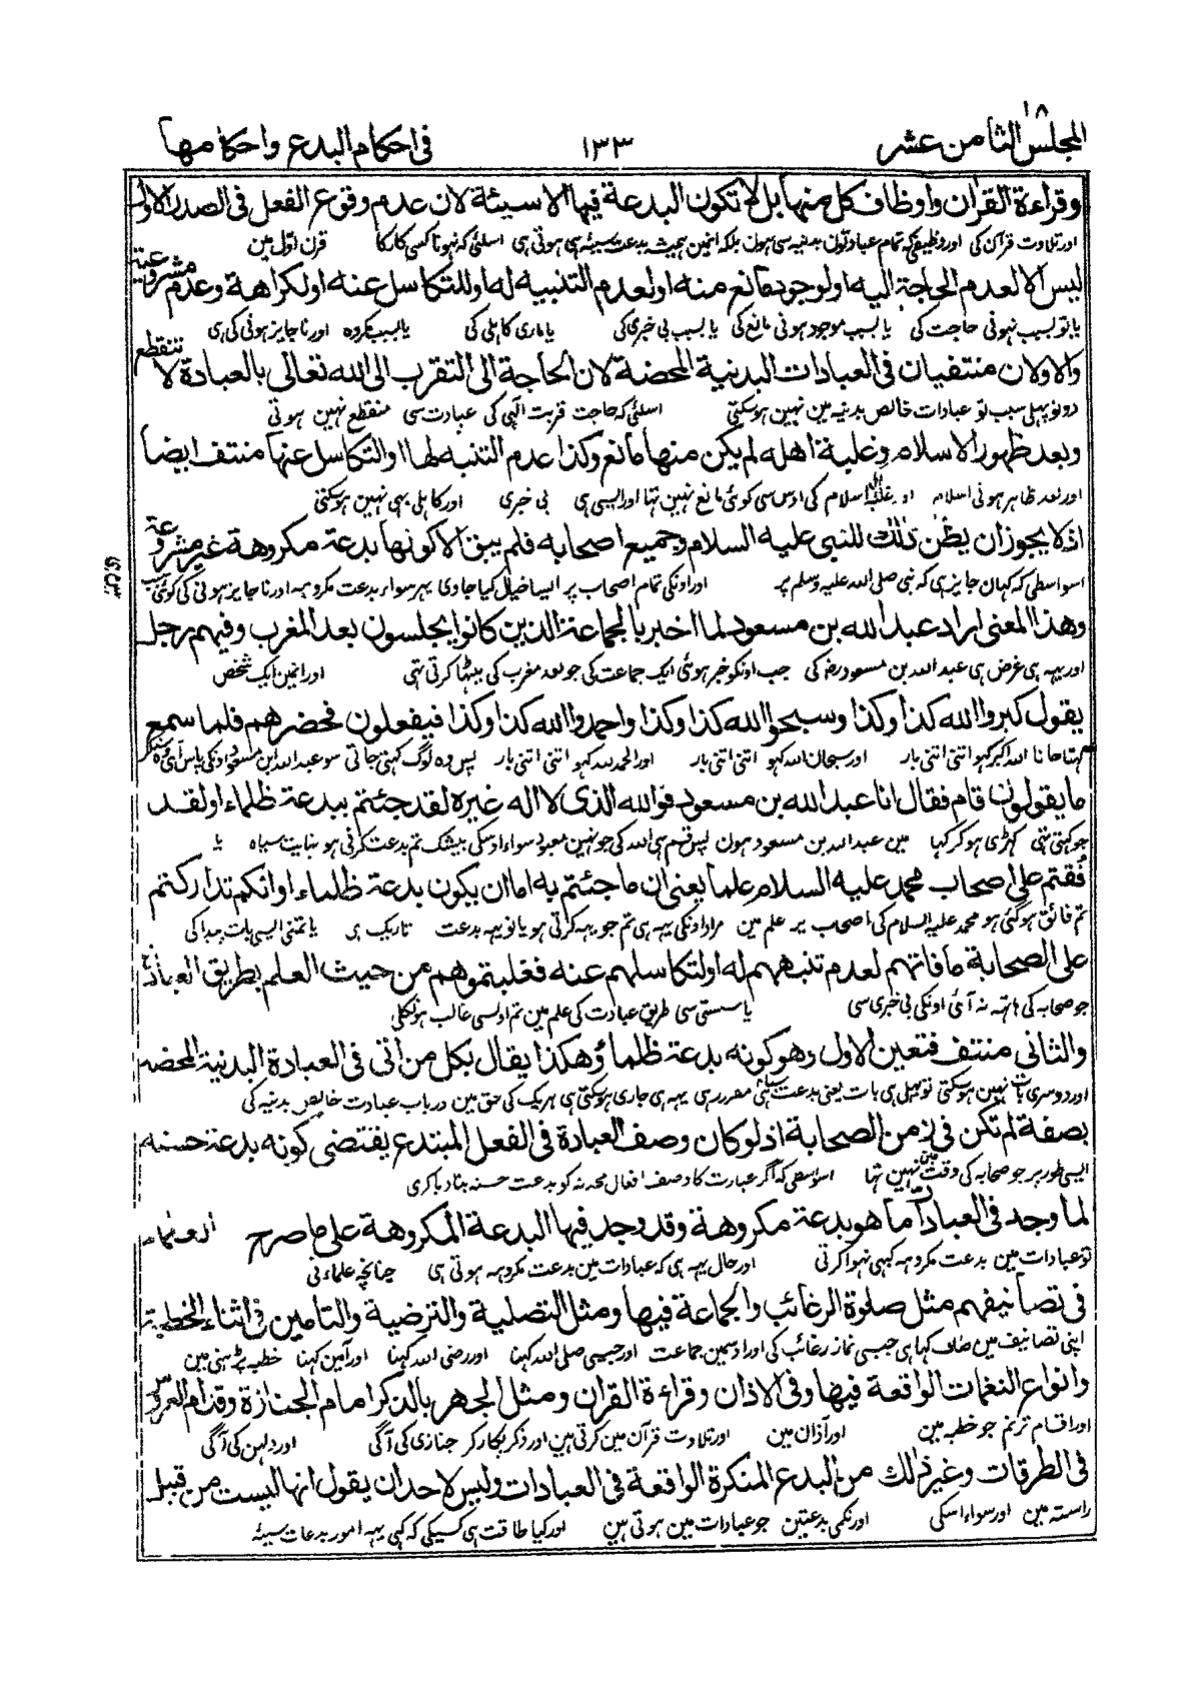 المجلس الثامن عشر ١٨
١٣٣
فى احكام البدع واحكامها
وقراءة القران واوظاف كل منها بل لا تكون البدعة فيها الا سيئة لان عدم وقوع الفعل فى الصدر الاول
اور تلاوت قرآن کی اور وظیفی کہ تمام عبادتون بدنیہ سی ہون بلکہ انمین ہمیشہ بدعت سیئہ ہی ہوتی ہی اسلئی کہ نہونا کسی کار کا قرن اوّل مین
ليس الا لعدم الحاجة اليه اولوجود مانع منه اولعدم التنبيه له اوللتكاسل عنه اولكراهة وعدم مشروعية
یا تو بسبب نہونی حاجت کی یا بسبب موجود ہونی مانع کی یا بسبب بی خبری کی یا ماری کاہلی کی یا بسبب مکروہ اور ناجایز ہونی کی ہی
والاولان منتفيان فى العبادات البدنية المحضة لان الحاجة الى التقرب الى الله تعالى بالعبادة لا تنقطع
دونو پہلی سبب تو عبادات خالص بدنیہ مین نہین ہوسکتی اسلئی کہ حاجت قربت الٰہی کی عبادت سی منقطع نہین ہوتی
وبعد ظهور الاسلام وغلبة اهله لم يكن منها مانع وكذا عدم التنبه لها او التكاسل عنها منتف ايضا
اور بعد ظاہر ہونی اسلام اور غلبہ اہل اسلام کی اوس سی کوئی مانع نہین تہا اور ایسی ہی بی خبری اور کاہلی بہی نہین ہوسکتی
اذ لا يجوز ان يظن ذلك للنبى عليه السلام وجميع اصحابه فلم يبق الا كونها بدعة مكروهة غير مشروعة
اسواسطی کہ کہان جایز ہی کہ نبی صلی اللہ علیہ وسلم پر اور اونکی تمام اصحاب پر ایسا خیال کیا جاوی پہر سواء بدعت مکروہہ اور ناجایز ہونی کی کوئی سبب
وهذا المعنى اراد عبد الله بن مسعود لما اخبر بالجماعة الذين كانوا يجلسون بعد المغرب وفيهم رجل
اور یہہ ہی غرض ہی عبد اللہ بن مسعود رض کی جب اونکو خبر ہوئی ایک جماعت کی جو بعد مغرب کی بیٹہا کرتی تہی اور انمین ایک شخص
يقول كبروا الله كذا وكذا وسبحوا الله كذا وكذا واحمدوا الله كذا وكذا فيفعلون فحضرهم فلما سمع
کہتا جاتا اللہ اکبر کہو اتنی اتنی بار اور سبحان اللہ کہو اتنی اتنی بار اور الحمد للہ کہو اتنی اتنی بار پس وہ لوگ کہتی جاتی سو عبد اللہ ابن مسعود اونکی پاس آئی
ما يقولون قام فقال انا عبد الله بن مسعود فوالله الذى لا اله غيره لقد جئتم ببدعة ظلماء اولقد
جو کہتی تہی کہڑی ہوکر کہا مین عبد اللہ بن مسعود ہون پس قسم ہی اللہ کی جو نہین معبود سواء اوسکی بیشک تم بدعت کرتی ہو نہایت سیاہ یا
فقتم على اصحاب محمد عليه السلام علما يعنى ان ما جئتم به اما ان يكون بدعة ظلماء او انكم تداركتم
تم فائق ہوگئی ہو محمد علیہ السلام کی اصحاب پر علم مین مراد اونکی یہہ ہی تم جو یہہ کرتی ہو یا تو یہہ بدعت تاریک ہی یا تمنی ایسی بات پیدا کی
على الصحابة ما فاتهم لعدم تنبههم له اولتكاسلهم عنه فغلبتموهم من حيث العلم بطريق العبادة
جو صحابہ کی ہاتہہ نہ آئی اونکی بی خبری سی یا سستی سی طریق عبادت کی علم مین تم اونسی غالب ہونکلی
والثانى منتف فتعين الاول وهو كونه بدعة ظلماء وهكذا يقال بكل من اتى فى العبادة البدنية المحضة
اور دوسری بات نہین ہوسکتی تو پہلی ہی بات یعنی بدعت سیاہ ہی مقرر رہی یہہ ہی جاری ہوسکتی ہی ہریک کی حق مین درباب عبادت خالص بدنیہ کی
بصفة لم تكن فى زمن الصحابة اذ لو كان وصف العبادة فى الفعل المبتدع يقتضى كونه بدعة حسنة
ایسی طور پر جو صحابہ کی وقت مین نہین تہا اسواسطی کہ اگر عبادت کا وصف افعال محدثہ کو بدعت حسنہ بنا دیا کری
لما وجد فى العبادات ما هو بدعة مكروهة وقد وجد فيها البدعة المكروهة على ما صرح العلماء
تو عبادات مین بدعت مکروہہ کبہی نہوا کرتی اور حال یہہ ہی کہ عبادات مین بدعت مکروہہ ہوتی ہی چنانچہ علماء نی
فى تصانيفهم مثل صلوة الرغائب والجماعة فيها ومثل التصلية والترضية والتامين فى اثناء الخطبة
اپنی تصانیف مین صاف کہا ہی جیسی نماز رغائب کی اور اوسمین جماعت اور جیسی صلی اللہ کہنا اور رضی اللہ کہنا اور آمین کہنا خطبہ پڑہنی مین
وانواع النغمات الواقعة فيها وفى الاذان وقراءة القران ومثل الجهر بالذكر امام الجنازة وقدام العروس
اور اقسام ترنم جو خطبہ مین اور آذان مین اور تلاوت قرآن مین کرتی ہین اور ذکر پکار کر جنازی کی آگی اور دلہن کی آگی
فى الطرقات وغير ذلك من البدع المنكرة الواقعة فى العبادات وليس لاحد ان يقول انها ليست من قبيل
راستہ مین اور سواء اسکی اور نکمی بدعتین جو عبادات مین ہوتی ہین اور کیا طاقت ہی کسیکی کہ کہی یہہ امور بدعات سیئہ